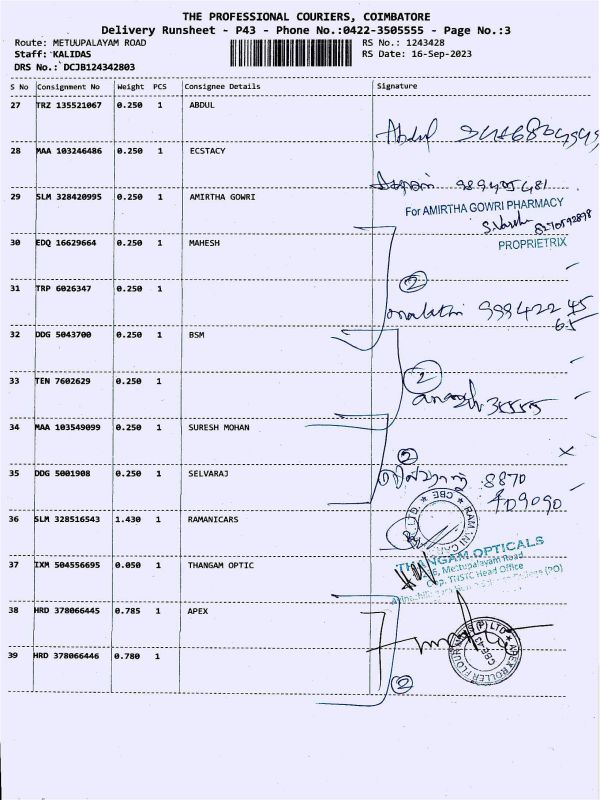 THE PROFESSIONAL COURIERS, COIMBATORE
Delivery Runsheet - P43 - Phone No.:0422-3505555 - Page No.:3
Route: METUUPALAYAM ROAD RS No.: 1243428
Staff: KALIDAS RS Date: 16-Sep-2023
DRS No.: DCJB124342803
S No Consignment No Weight PCS Consignee Details Signature
27 TRZ 135521067 0.250 1 ABDUL
Abdul
28 MAA 103246486 0.250 1 ECSTACY
29 SLM 328420995 0.250 1 AMIRTHA GOWRI
For AMIRTHA GOWRI PHARMACY
8270592898
PROPRIETRIX
30 EDQ 16629664 0.250 1 MAHESH
2
31 TRP 6026347 0.250 1
99842245
65
32 DDG 5043700 0.250 1 BSM
2
33 TEN 7602629 0.250 1
35555
34 MAA 103549099 0.250 1 SURESH MOHAN
2
35 DDG 5001908 0.250 1 SELVARAJ
8870
409090
36 SLM 328516543 1.430 1 RAMANICARS
37 IXM 504556695 0.050 1 THANGAM OPTIC
THANGAM OPTICALS
Mettupalayam Road
Head Office
38 HRD 378066445 0.785 1 APEX
APEX ROLLER FLOUR MILLS (P) LTD
CBE-43
39 HRD 378066446 0.780 1
2